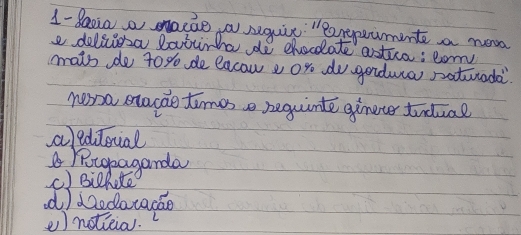 1- Leia a oração a seguir: "Experimente a nova
e deliciosa barrinha de chocolate astica: com
mais de 70% de cacau e 0% de gordura saturada".
nessa oração temos o seguinte gênero textual
a) editorial
b) Propaganda
c) Bilhete
d) Declaração
e) notícia.